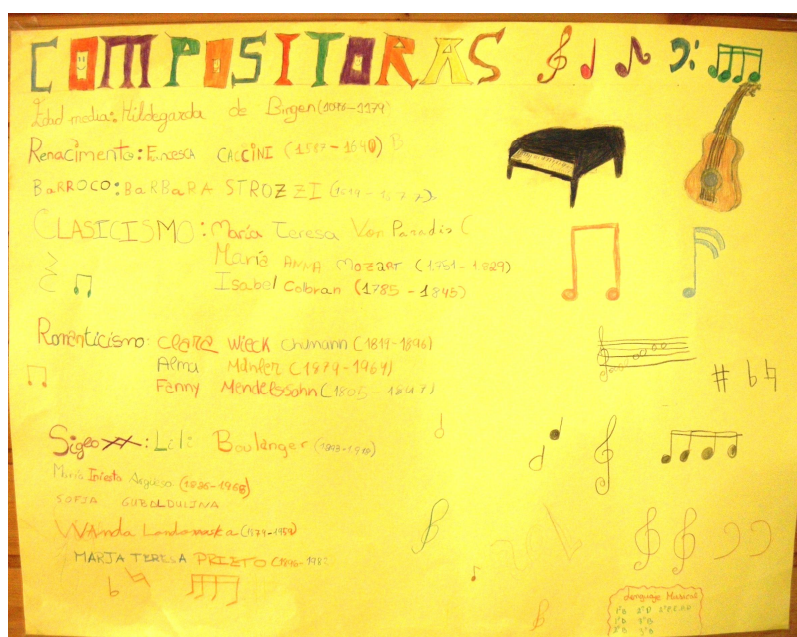 COMPOSITORAS
Edad media: Hildegarda de Bingen (1098-1179)
Renacimento: Francesca CACCINI (1587-1640) B
BaRROCO: BaRBaRA STROZZI (1619-1677).
CLASICISMO: María Teresa Von Paradis (
María ANNA MozaRT (1751-1829)
Isabel Colbran (1785-1845)
Romanticismo: Clara Wieck chumann (1819-1896)
Alma Mahler (1879-1964)
Fanny Mendelssohn (1805-1847)
Siglo XX: Lili Boulanger (1893-1918)
María Iniesta (1886-1968)
SOFIA
WAnda Landowska (1879-1959)
MARIA TERESA PRIETO (1896-1982
Lenguaje Musical